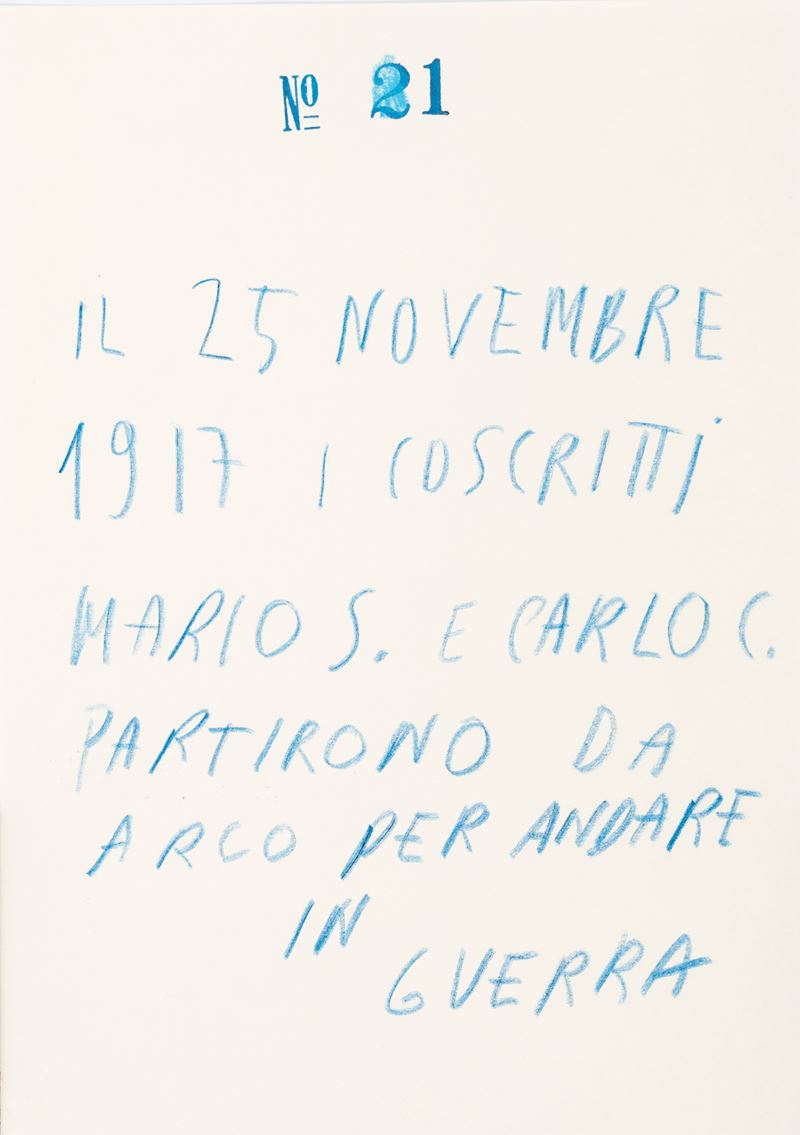 No 21
IL 25 NOVEMBRE
1917 I COSCRITTI
MARIO S. E CARLO C.
PARTIRONO DA
ARCO PER ANDARE
IN
GUERRA